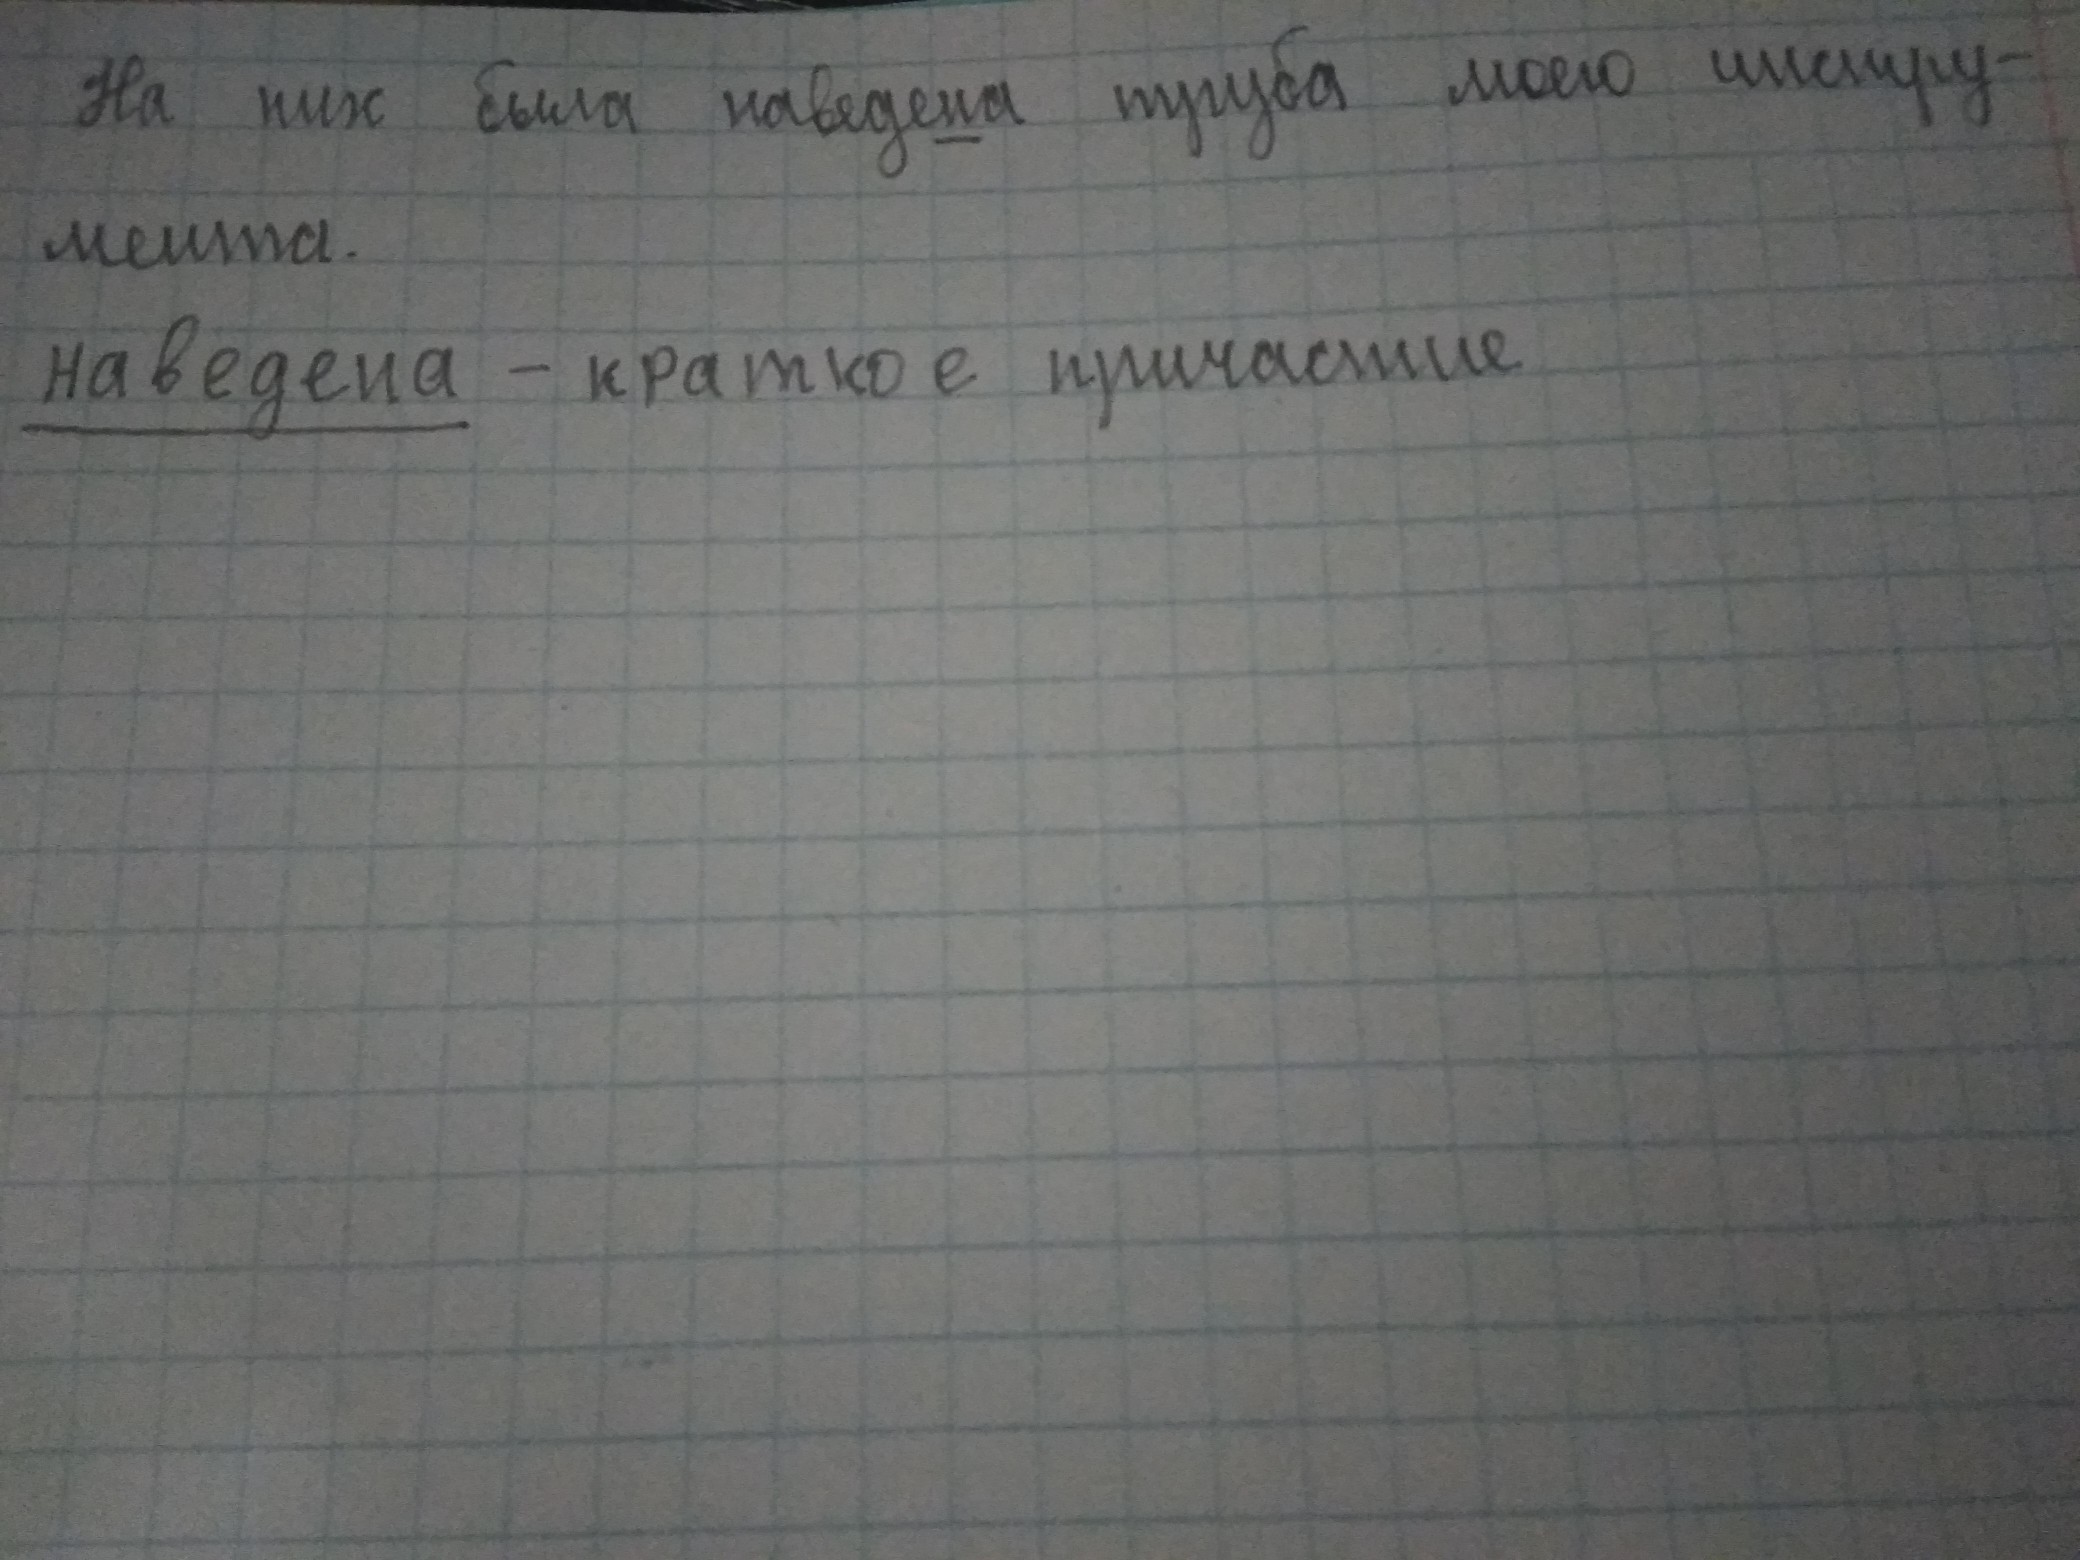 На них была наведена труба моего инстру-
мента.
наведена - краткое причастие